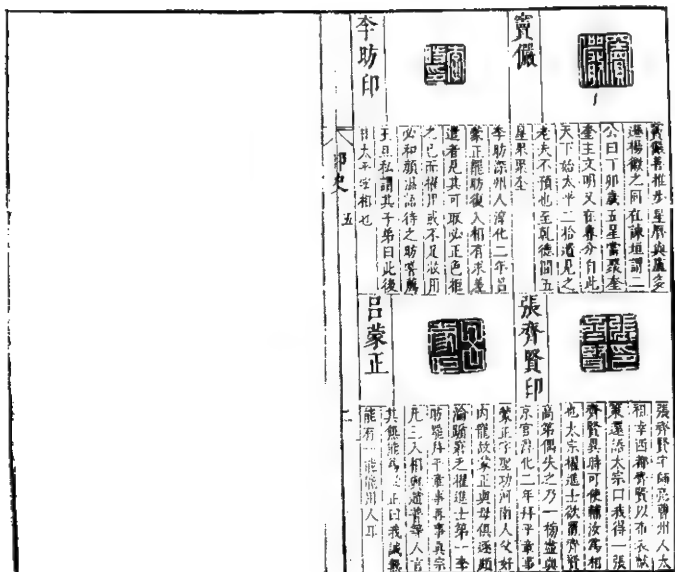 竇儼
竇儼善推步星曆與盧多
遜楊徽之同在諫垣謂二
公曰丁卯歲五星當聚奎
奎主文明又在魯分自此
天下始太平二拾遺見之
老夫不預也至乾德間五
星果聚奎
李昉印
李昉深州人淳化二年呂
蒙正罷昉復入相有求差
遣者見其可取必正色拒
之已而擢用或不足收用
必和顏溫語待之昉嘗薦
王旦私謂其子弟曰此後
日太平宰相也
張齊賢印
張齊賢字師亮曹州人太
祖幸西都齊賢以布衣獻
策還語太宗曰我得一張
齊賢異時可使輔汝為相
也太宗擢進士欲置齊賢
高第偶失之乃一榜盡與
京官淳化二年拜平章事
呂蒙正
蒙正字聖功河南人父好
內寵故蒙正與母俱逐頗
淪躓窮乏擢進士第一李
昉罷拜平章事再事真宗
凡三入相與趙普等人官
其無能正曰我誠無
能有一能能用人耳
印史
五
二